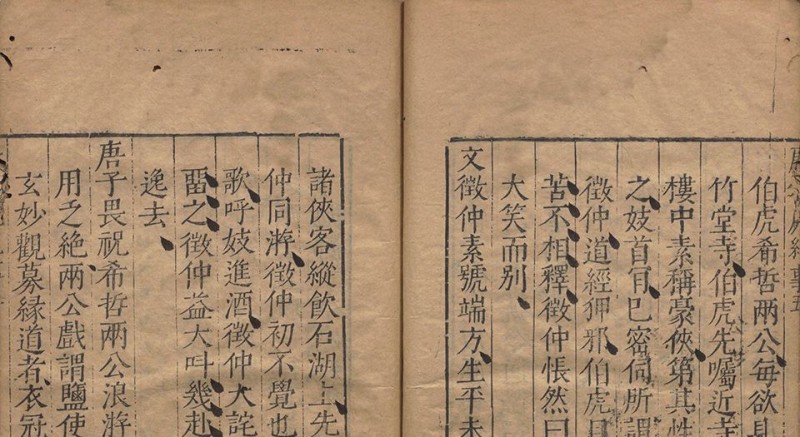 伯虎希哲兩公每欲
竹堂寺伯虎先囑近
樓中素稱豪俠第其性
之妓首肯已密伺所謂
徵仲道經狎邪伯虎
苦不相釋徵仲悵然曰
大笑而别
文徵仲素號端方生平未
諸俠客縱飲石湖上先
仲同游徵仲初不覺也
歌呼妓進酒徵仲大詫
畱之徵仲益大呌幾赴
逸去
唐子畏祝希哲兩公浪游
用乏絶兩公戲謂鹽使
玄妙觀募縁道者衣冠